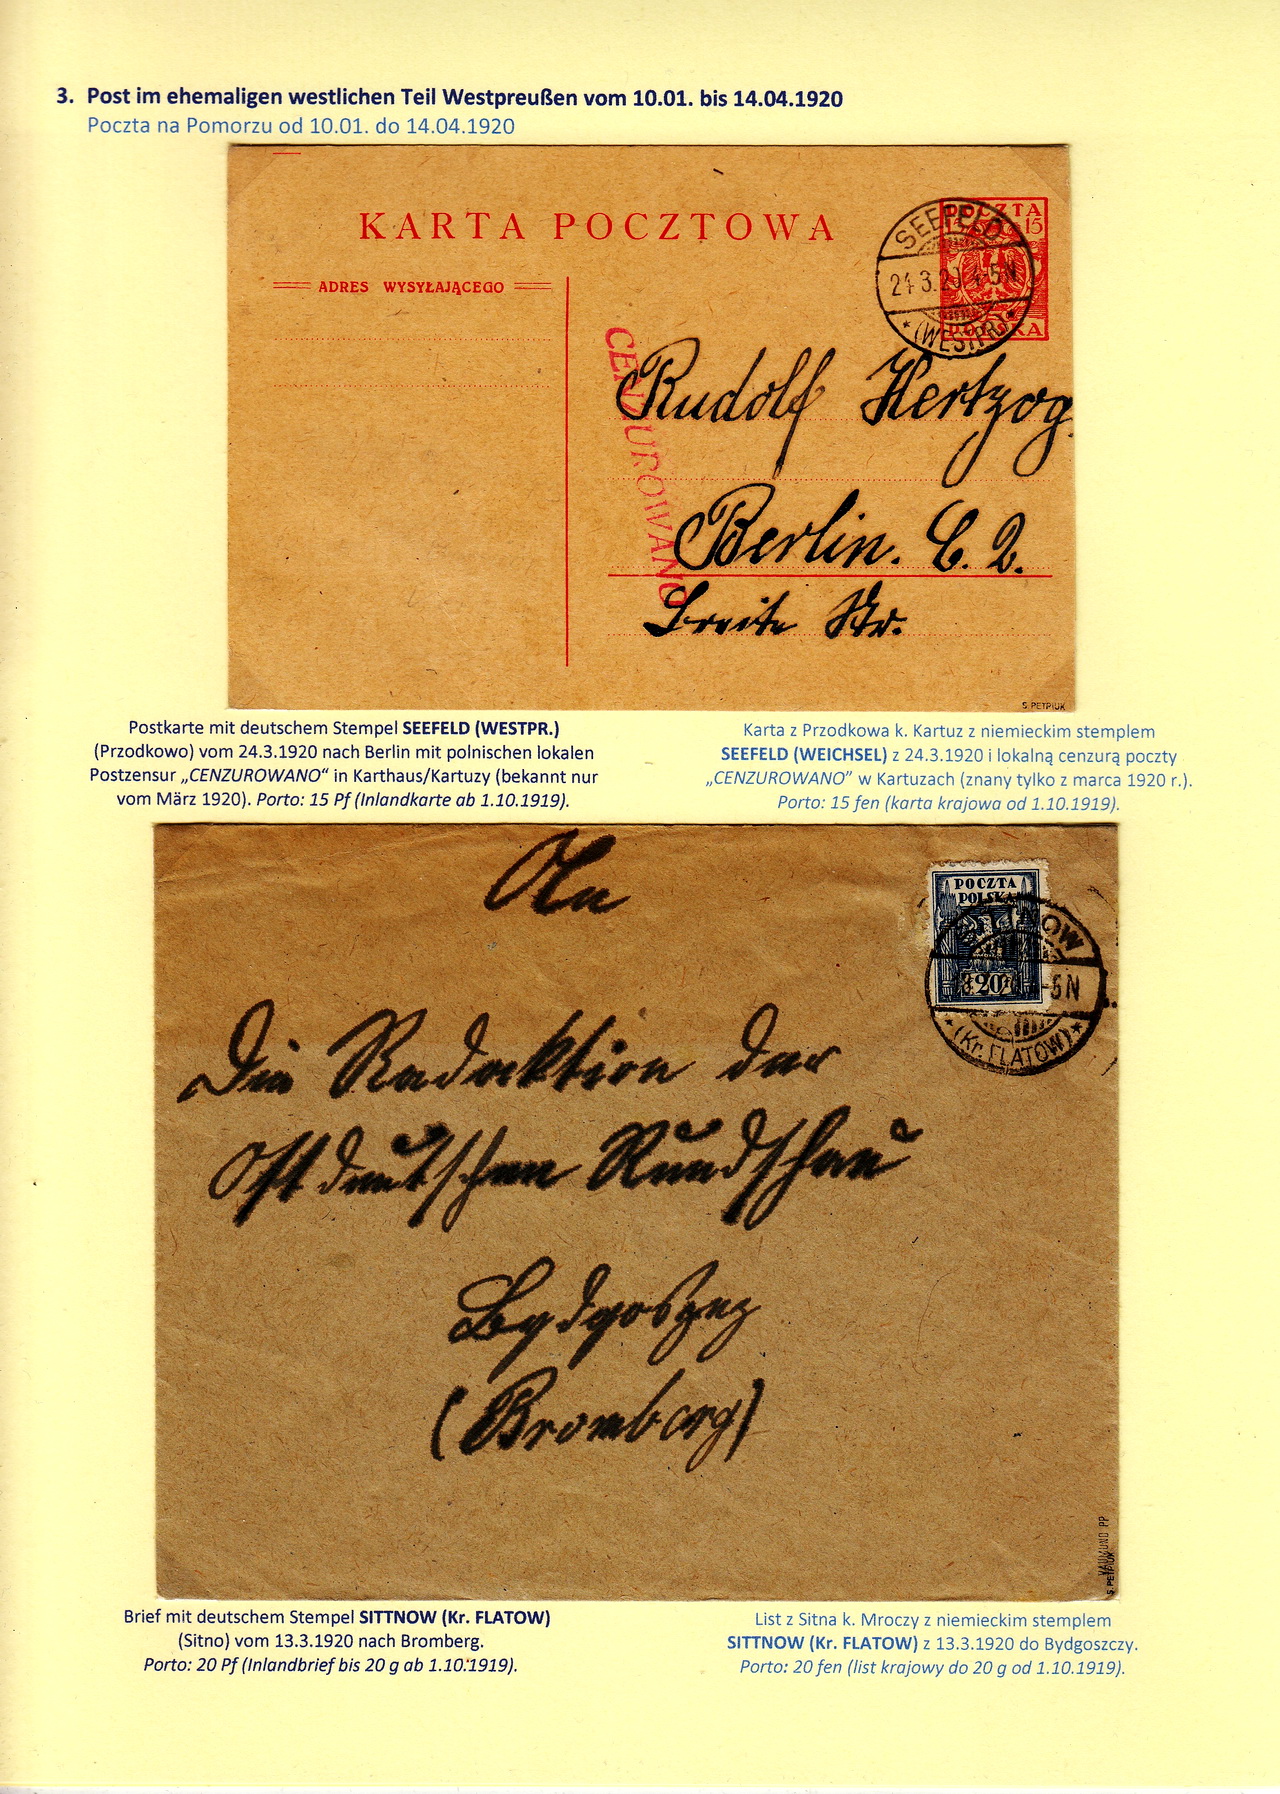 3. Post im ehemaligen westlichen Teil Westpreußen vom 10.01. bis 14.04.1920
Poczta na Pomorzu od 10.01. do 14.04.1920
KARTA POCZTOWA
POCZTA
15 15
POLSKA
SEEFELD
24.3.20 4-5N
* (WESTPR.) *
ADRES WYSYŁAJĄCEGO
CENZUROWANO
Rudolf Hertzog.
Berlin. C. 2.
Breite Str.
S. PETRIUK
Postkarte mit deutschem Stempel SEEFELD (WESTPR.)
(Przodkowo) vom 24.3.1920 nach Berlin mit polnischen lokalen
Postzensur „CENZUROWANO“ in Karthaus/Kartuzy (bekannt nur
vom März 1920). Porto: 15 Pf (Inlandkarte ab 1.10.1919).
Karta z Przodkowa k. Kartuz z niemieckim stemplem
SEEFELD (WEICHSEL) z 24.3.1920 i lokalną cenzurą poczty
„CENZUROWANO” w Kartuzach (znany tylko z marca 1920 r.).
Porto: 15 fen (karta krajowa od 1.10.1919).
An
POCZTA
POLSKA
20
SITTNOW
-5N
* (Kr. FLATOW) *
Die Redaktion der
Ostdeutschen Rundschau
Bydgoszcz
(Bromberg)
S. PETRIUK
Brief mit deutschem Stempel SITTNOW (Kr. FLATOW)
(Sitno) vom 13.3.1920 nach Bromberg.
Porto: 20 Pf (Inlandbrief bis 20 g ab 1.10.1919).
List z Sitna k. Mroczy z niemieckim stemplem
SITTNOW (Kr. FLATOW) z 13.3.1920 do Bydgoszczy.
Porto: 20 fen (list krajowy do 20 g od 1.10.1919).